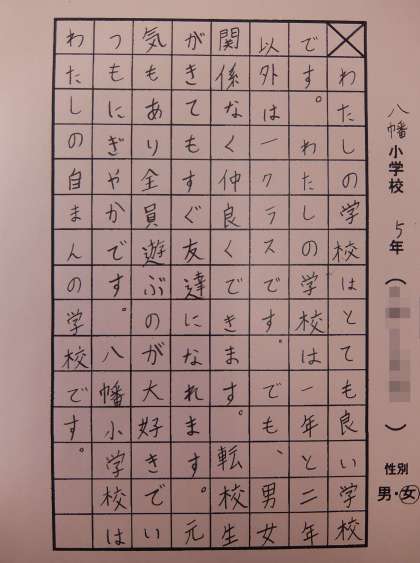 八幡小学校 5年（ ）性別 男・女
わたしの学校はとても良い学校
です。わたしの学校は一年と二年
以外は一クラスです。でも、男女
関係なく仲良くできます。転校生
がきてもすぐ友達になれます。元
気もあり全員遊ぶのが大好きでい
つもにぎやかです。八幡小学校は
わたしの自まんの学校です。